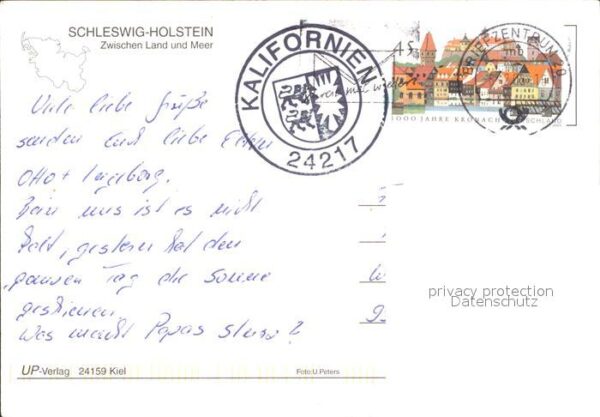 SCHLESWIG-HOLSTEIN
Zwischen Land und Meer
KALIFORNIEN
24217
45
BRIEFZENTRUM
mb
1000 JAHRE KRONACH
DEUTSCHLAND
Viele liebe Grüße
senden Euch liebe Eltern
Otto + Ingeborg.
Bei uns ist es nicht
kalt, gestern hat den
ganzen Tag die Sonne
geschienen.
Was macht Papas
privacy protection
Datenschutz
UP-Verlag 24159 Kiel
Foto: U. Peters